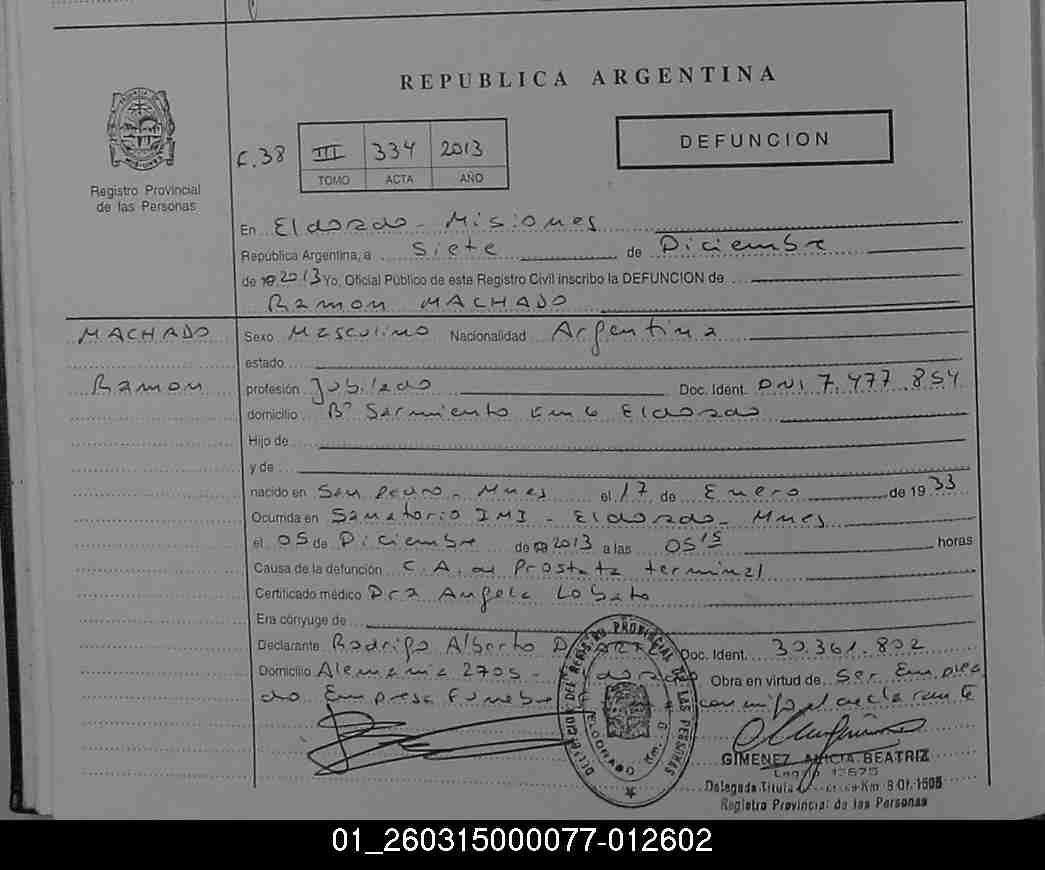 REPUBLICA ARGENTINA
PROVINCIA DE
MISIONES
Registro Provincial
de las Personas
F.38 III 334 2013
TOMO ACTA AÑO
DEFUNCION
En Eldorado - Misiones
República Argentina, a siete de Diciembre
de 2013 Yo, Oficial Público de este Registro Civil inscribo la DEFUNCION de
Ramon MACHADO
MACHADO
Ramon
Sexo Masculino Nacionalidad Argentina
estado
profesión Jubilado Doc. Ident. DNI 7.477.854
domicilio Bº Sarmiento Km 6 Eldorado
Hijo de
y de
nacido en San Pedro - Mnes el 17 de Enero de 1933
Ocurrida en Sanatorio IMI - Eldorado - Mnes
el 05 de Diciembre de 2013 a las 05 15 horas
Causa de la defunción C.A. de Prostata terminal
Certificado médico Dra Angela Lobato
Era cónyuge de
Declarante Rodrigo Alberto Doc. Ident. 30.361.802
Domicilio Alemania 2705 - Eldorado Obra en virtud de ser Emplea
do Empresa Funebre declarante
DELEGACION DEL REGISTRO PROVINCIAL DE LAS PERSONAS
ELDORADO Km. 9
GIMENEZ ALICIA BEATRIZ
Delegada Titular Km 9 Of. 1505
Registro Provincial de las Personas
01_260315000077-012602